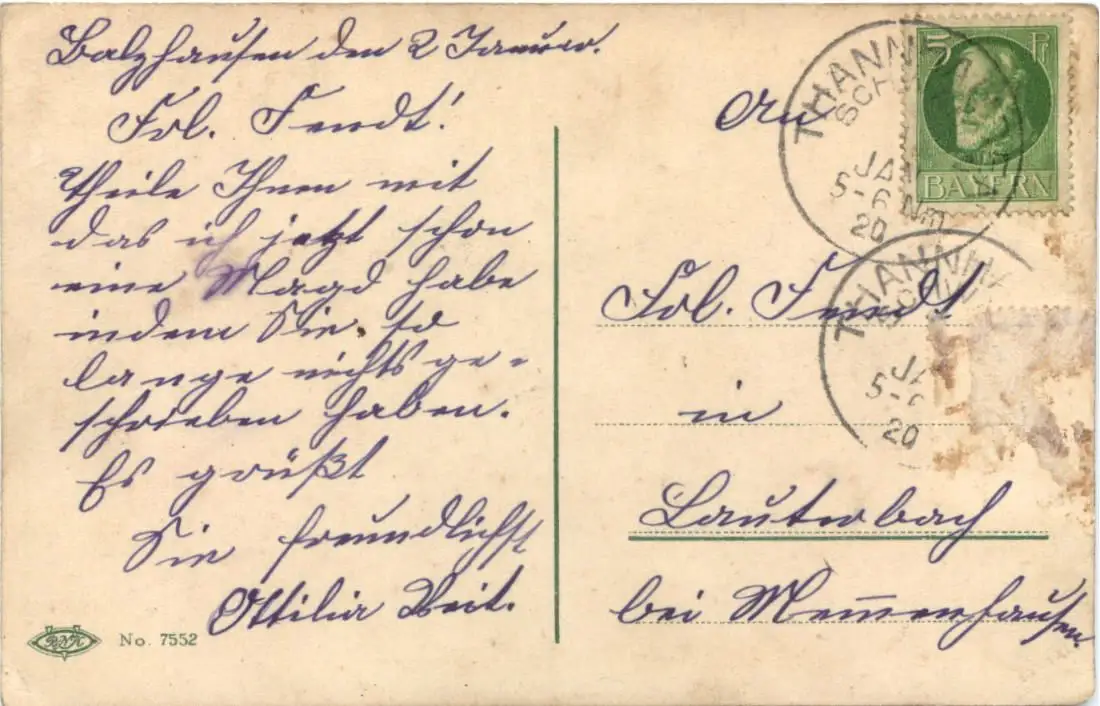 Balzhausen den 2 Januar.
Frl. Fendt!
Theile Ihnen mit
das ich jetzt schon
eine Magd habe
indem Sie so
lange nichts ge-
schrieben haben.
Es grüßt
Sie freundlichst
Ottilia Veit.
No. 7552
An
Frl. Fendt
in
Lauterbach
bei Memmenhausen
5 Pf
BAYERN
THANNHA
SCH
JAN
5-6 Nm
20
THANNHA
SCHW
JA
5-
20